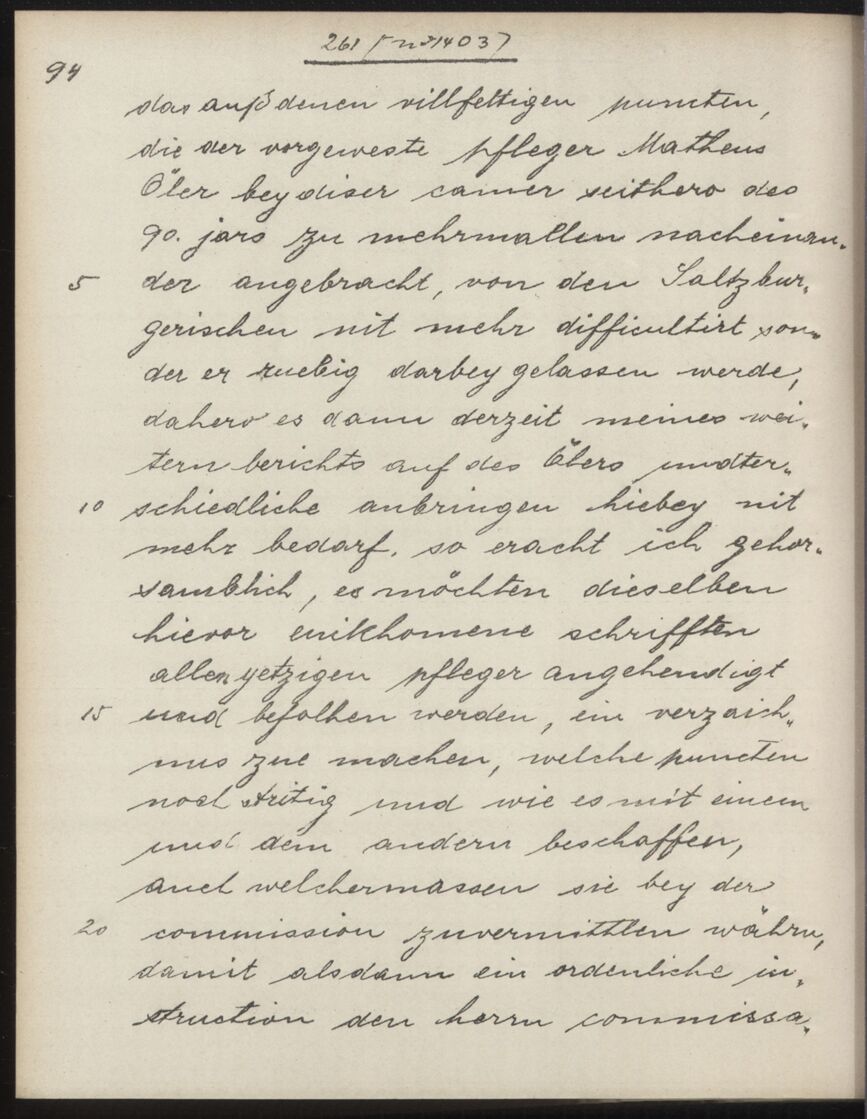 261 (n°1403)
94
das auß denen villfeltigen puncten,
die der vorgeweste pfleger Matheus
Öler bey diser camer seithero des
90. jars zu mehrmallen nacheinan„
5 der angebracht, von den Saltzbur„
gerischen nit mehr difficultirt son„
der er ruebig darbey gelassen werde,
dahero es dann derzeit meines wei„
tern berichts auf des Ölers undter„
10 schiedliche anbringen hiebey nit
mehr bedarf. so eracht ich gehor„
samblich, es möchten dieselben
hievor einkhomene schrifften
allen yetzigen pfleger angehendigt
15 und befolhen werden, ein verzaich„
nus zue machen, welche puncten
noch stritig und wie es mit einem
und dem andern beschaffen,
auch welchermassen sie bey der
20 commission zuvermittlen währn,
damit alsdann ein ordenliche in„
struction den herrn commissa„